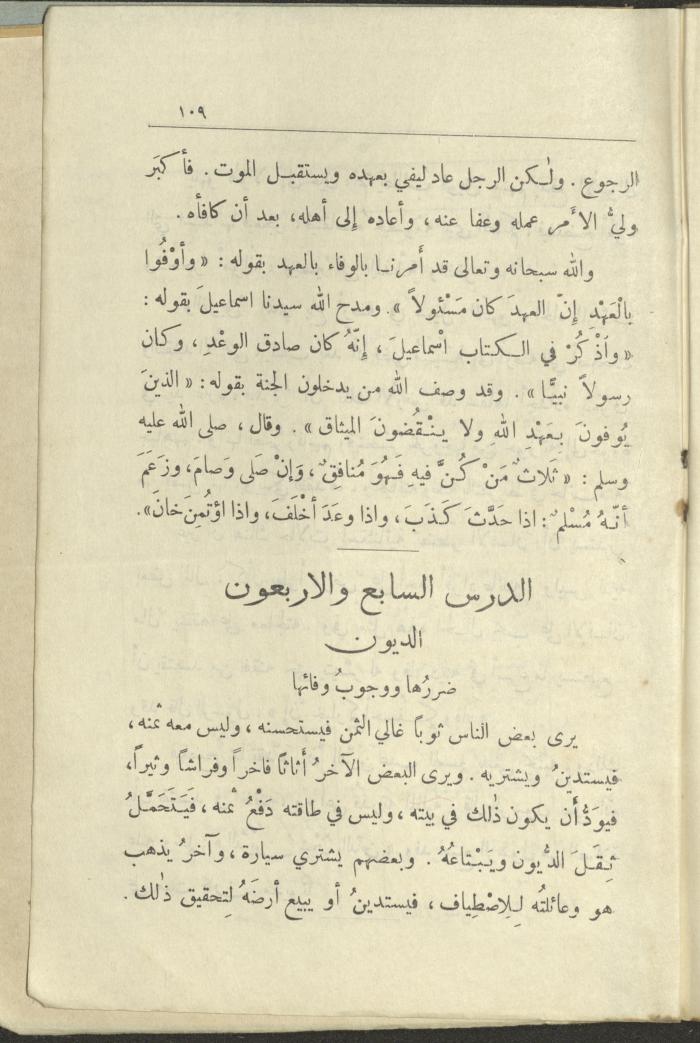 ١٠٩
الرجوع . ولٰكن الرجل عاد ليفي بعهده ويستقبل الموت . فأكبَر
وليُّ الأمر عمله وعفا عنه ، وأعاده إلى أهله، بعد أن كافأه .
والله سبحانه وتعالى قد أمرنا بالوفاء بالعهد بقوله : « وأوْفُوا
بالْعَهْدِ إنّ العهدَ كان مَسْئولاً » . ومدح الله سيدنا اسماعيلَ بقوله :
« واذْكُرْ في الكتاب اسْماعيلَ ، إنّهُ كان صادق الوعْدِ ، وكان
رسولاً نبيًّا » . وقد وصف الله من يدخلون الجنة بقوله : « الذينَ
يُوفونَ بِعَهْدِ اللهِ ولا يَنْقُضونَ الميثاق » . وقال ، صلى الله عليه
وسلم : « ثَلاثٌ مَنْ كُنَّ فيهِ فَهُوَ مُنافِقٌ ، وَإنْ صَلى وَصامَ، وزَعَمَ
أنّهُ مُسْلمٌ : اذا حَدَّثَ كَذَبَ ، واذا وعَدَ أخْلَفَ، واذا اؤتُمِنَ خانَ».
الدرس السابع والاربعون
الديون
ضررُها ووجوبُ وفائها
يرى بعض الناس ثوباً غالي الثمن فيستحسنه ، وليس معه ثمنه ،
فيستدينُ ويشتريه . ويرى البعض الآخرُ أثاثاً فاخراً وفراشاً وثيراً،
فيوَدُّ أن يكون ذٰلك في بيته ، وليس في طاقته دَفْعُ ثمنه ، فَيَتَحَمَّلُ
ثِقَلَ الدُّيون ويَبْتاعُهُ . وبعضهم يشتري سيارة ، وآخرُ يذهب
هو وعائلتُه لِلِاصْطِياف ، فيستدينُ أو يبيع أرضَهُ لِتحقيق ذٰلك .